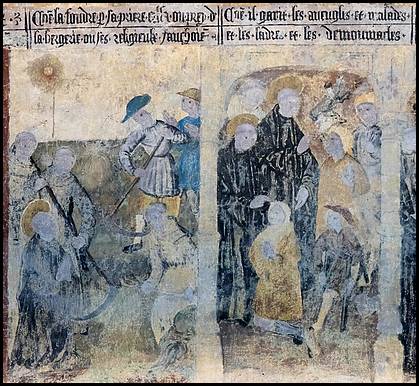 Cōe la foudre p sa priere on prey d
la bergerie ou ses religieulx fauchoiē
Cōe il garit les aueugles et malades
et les ladre et les demoniacles.